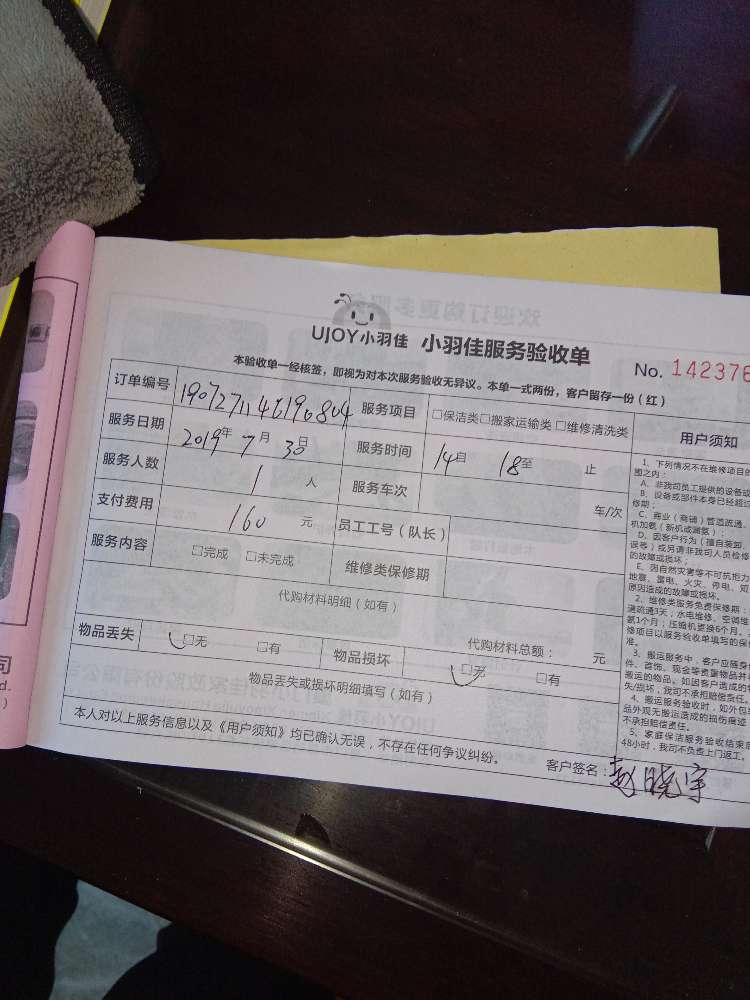 UJOY小羽佳 小羽佳服务验收单
No. 142376
本验收单一经核签，即视为对本次服务验收无异议。本单一式两份，客户留存一份（红）
订单编号 1907271146190804 服务项目 □保洁类□搬家运输类□维修清洗类
服务日期 2019年 7月 30日 服务时间 14自 18至 止
服务人数 1 人 服务车次 车/次
支付费用 160 元 员工工号（队长）
服务内容 □完成 □未完成 维修类保修期
代购材料明细（如有）
代购材料总额： 元
物品丢失 □无 □有 物品损坏 □无 □有
物品丢失或损坏明细填写（如有）
本人对以上服务信息以及《用户须知》均已确认无误，不存在任何争议纠纷。
客户签名：赵晓宇
用户须知
1、下列情况不在维修项目的
围之内：
A、非我司员工提供的设备或
B、设备或部件本身已经超过
修期；
C、商业（商铺）管道疏通、
机加氨（新机或漏氨）；
D、因客户行为（擅自装卸、
误等）或另请非我司人员检修
的故障或损坏；
E、因自然灾害等不可抗拒力
地震、雷电、火灾、停电、短
原因造成的故障或损坏。
2、维修类服务免费保修期：
道疏通3天；水电维修、空调维
氨1个月；压缩机更换6个月。
修项目以服务验收单填写的保
准。
3、搬运服务中，客户应随身
件、首饰、现金等贵重物品并
搬运的物品。如因客户造成的
失/损坏，我司不承担赔偿责任。
4、搬运服务验收时，如外包
品外观无搬运造成的损伤痕迹
不承担赔偿责任。
5、家庭保洁服务验收结束后
48小时，我司不负责上门返工。
司
d.
)